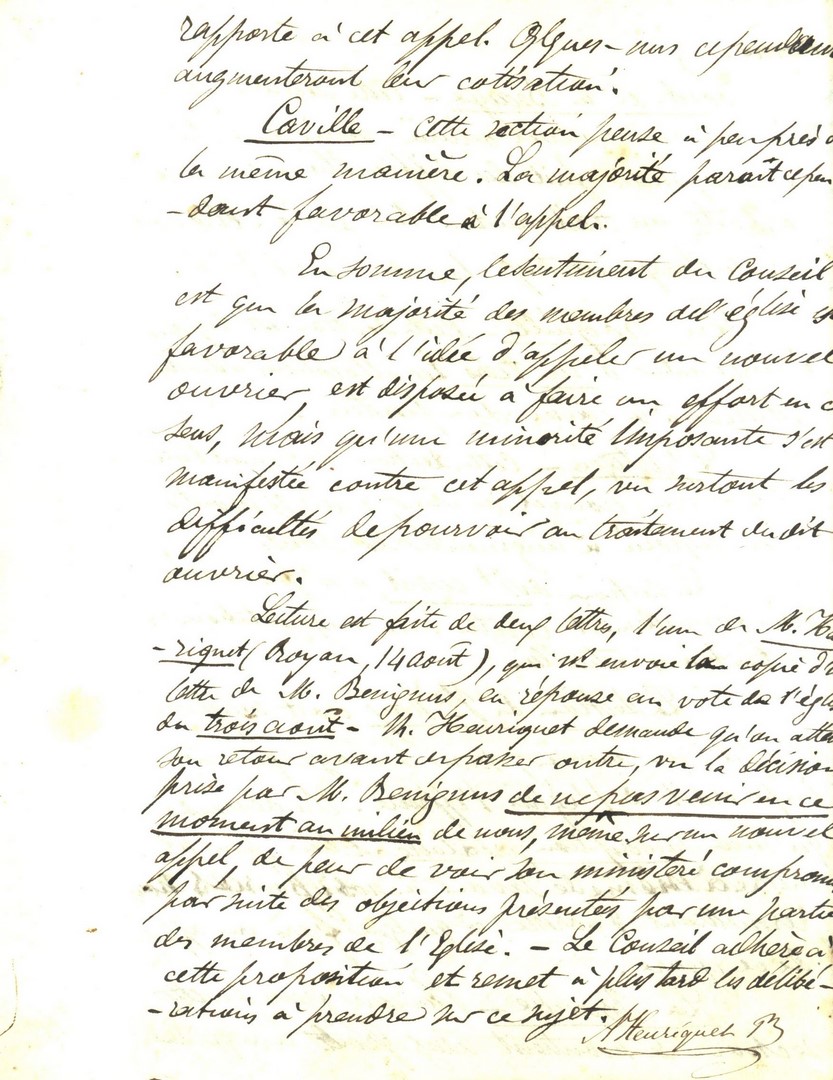 rapporte à cet appel. Qlques-uns cependant
augmenteront leur cotisation.
Caville - Cette section pense à peu près d
la même manière. La majorité paraît cepen
-dant favorable à l'appel.
En somme, le sentiment du Conseil
est que la majorité des membres de l'église
favorable à l'idée d'appeler un nouvel
ouvrier, est disposée à faire un effort en c
sens, mais qu'une minorité imposante s'est
manifestée contre cet appel, vu surtout les
difficultés de pourvoir au traitement du dit
ouvrier.
Lecture est faite de deux lettres, l'une de M. He
-riquet (Royan, 14 août), qui ns envoie la copie d'u
lettre de M. Benignus, en réponse au vote de l'égl
du trois août - M. Henriquet demande qu'on atte
son retour avant de passer outre, vu la décision
prise par M. Benignus de ne pas venir en ce
moment au milieu de nous, même sur un nouvel
appel, de peur de voir son ministère compromi
par suite des objections présentées par une partie
des membres de l'Eglise. - Le Conseil adhère à
cette proposition et remet à plus tard les délibé-
-rations à prendre sur ce sujet.
Henriquet